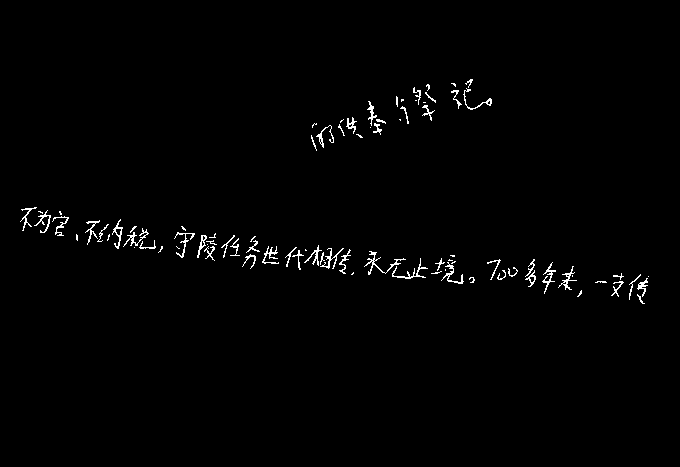 的供奉与祭祀。
不为官、不纳税，守陵任务世代相传，永无止境。700多年来，一支传